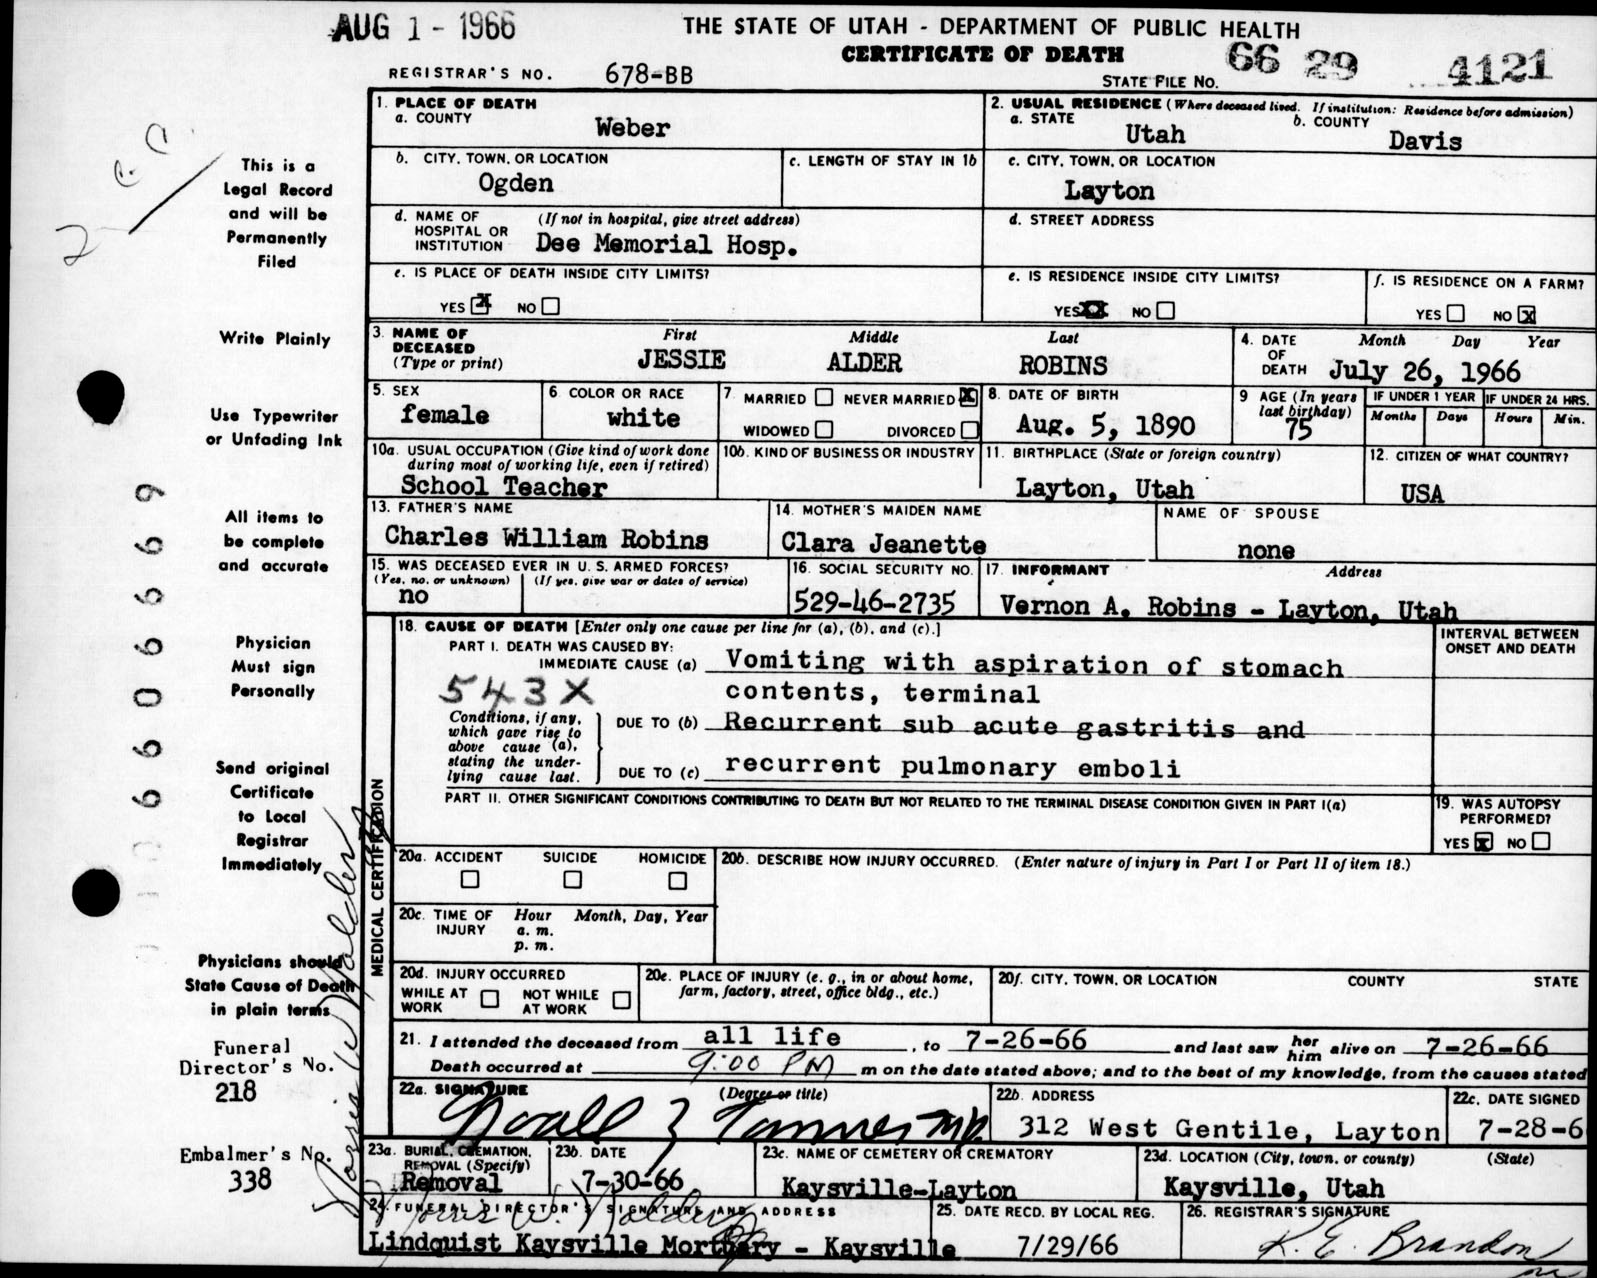 AUG 1 - 1966
THE STATE OF UTAH - DEPARTMENT OF PUBLIC HEALTH
CERTIFICATE OF DEATH
66 29 4121
REGISTRAR'S NO. 678-BB
STATE FILE NO.
This is a
Legal Record
and will be
Permanently
Filed
Write Plainly
Use Typewriter
or Unfading Ink
All items to
be complete
and accurate
Physician
Must sign
Personally
Send original
Certificate
to Local
Registrar
Immediately
Physicians should
State Cause of Death
in plain terms
Funeral
Director's No.
218
Embalmer's No.
338
1. PLACE OF DEATH
a. COUNTY
Weber
2. USUAL RESIDENCE (Where deceased lived. If institution: Residence before admission)
a. STATE
Utah
b. COUNTY
Davis
b. CITY, TOWN, OR LOCATION
Ogden
c. LENGTH OF STAY IN 1b
c. CITY, TOWN, OR LOCATION
Layton
d. NAME OF HOSPITAL OR INSTITUTION
(If not in hospital, give street address)
Dee Memorial Hosp.
d. STREET ADDRESS
e. IS PLACE OF DEATH INSIDE CITY LIMITS?
YES X NO
e. IS RESIDENCE INSIDE CITY LIMITS?
YES XX NO
f. IS RESIDENCE ON A FARM?
YES NO X
3. NAME OF DECEASED
(Type or print)
First Middle Last
JESSIE ALDER ROBINS
4. DATE OF DEATH
Month Day Year
July 26, 1966
5. SEX
female
6. COLOR OR RACE
white
7. MARRIED NEVER MARRIED X
WIDOWED DIVORCED
8. DATE OF BIRTH
Aug. 5, 1890
9. AGE (In years last birthday)
75
IF UNDER 1 YEAR
Months Days
IF UNDER 24 HRS.
Hours Min.
10a. USUAL OCCUPATION (Give kind of work done during most of working life, even if retired)
School Teacher
10b. KIND OF BUSINESS OR INDUSTRY
11. BIRTHPLACE (State or foreign country)
Layton, Utah
12. CITIZEN OF WHAT COUNTRY?
USA
13. FATHER'S NAME
Charles William Robins
14. MOTHER'S MAIDEN NAME
Clara Jeanette
NAME OF SPOUSE
none
15. WAS DECEASED EVER IN U. S. ARMED FORCES?
(Yes, no, or unknown) (If yes, give war or dates of service)
no
16. SOCIAL SECURITY NO.
529-46-2735
17. INFORMANT Address
Vernon A. Robins - Layton, Utah
MEDICAL CERTIFICATION
18. CAUSE OF DEATH [Enter only one cause per line for (a), (b), and (c).]
INTERVAL BETWEEN ONSET AND DEATH
PART I. DEATH WAS CAUSED BY:
IMMEDIATE CAUSE (a) Vomiting with aspiration of stomach
543X
contents, terminal
Conditions, if any, which gave rise to above cause (a), stating the underlying cause last.
DUE TO (b) Recurrent sub acute gastritis and
DUE TO (c) recurrent pulmonary emboli
PART II. OTHER SIGNIFICANT CONDITIONS CONTRIBUTING TO DEATH BUT NOT RELATED TO THE TERMINAL DISEASE CONDITION GIVEN IN PART I(a)
19. WAS AUTOPSY PERFORMED?
YES X NO
20a. ACCIDENT SUICIDE HOMICIDE
20b. DESCRIBE HOW INJURY OCCURRED. (Enter nature of injury in Part I or Part II of item 18.)
20c. TIME OF INJURY
Hour Month, Day, Year
a. m.
p. m.
20d. INJURY OCCURRED
WHILE AT WORK NOT WHILE AT WORK
20e. PLACE OF INJURY (e. g., in or about home, farm, factory, street, office bldg., etc.)
20f. CITY, TOWN, OR LOCATION COUNTY STATE
21. I attended the deceased from all life, to 7-26-66 and last saw her him alive on 7-26-66
Death occurred at 9:00 PM m on the date stated above; and to the best of my knowledge, from the causes stated
22a. SIGNATURE (Degree or title)
Noall Z Tanner MD.
22b. ADDRESS
312 West Gentile, Layton
22c. DATE SIGNED
7-28-6
23a. BURIAL, CREMATION, REMOVAL (Specify)
Removal
23b. DATE
7-30-66
23c. NAME OF CEMETERY OR CREMATORY
Kaysville-Layton
23d. LOCATION (City, town, or county) (State)
Kaysville, Utah
24. FUNERAL DIRECTOR'S SIGNATURE AND ADDRESS
Lindquist Kaysville Mortuary - Kaysville
25. DATE RECD. BY LOCAL REG.
7/29/66
26. REGISTRAR'S SIGNATURE
K. E. Brandon